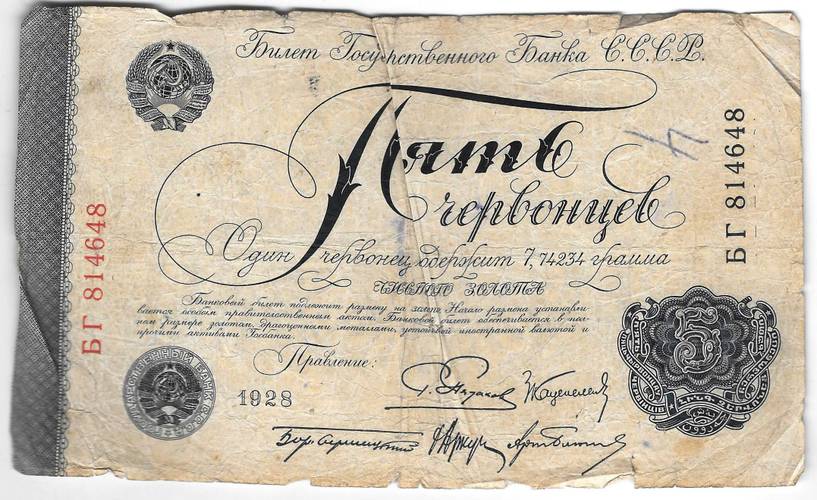 Билет Государственного Банка С.С.С.Р.
Пять
червонцев
Один червонец содержит 7,74234 грамма
ЧИСТОГО ЗОЛОТА
Банковый билет подлежит размену на золото. Начало размена устанавли-
вается особым правительственным актом. Банковый билет обеспечивается в пол-
ном размере золотом, драгоценными металлами, устойчивой иностранной валютой и
прочими активами Госбанка.
Правление:
1928
БГ 814648
БГ 814648
5
4